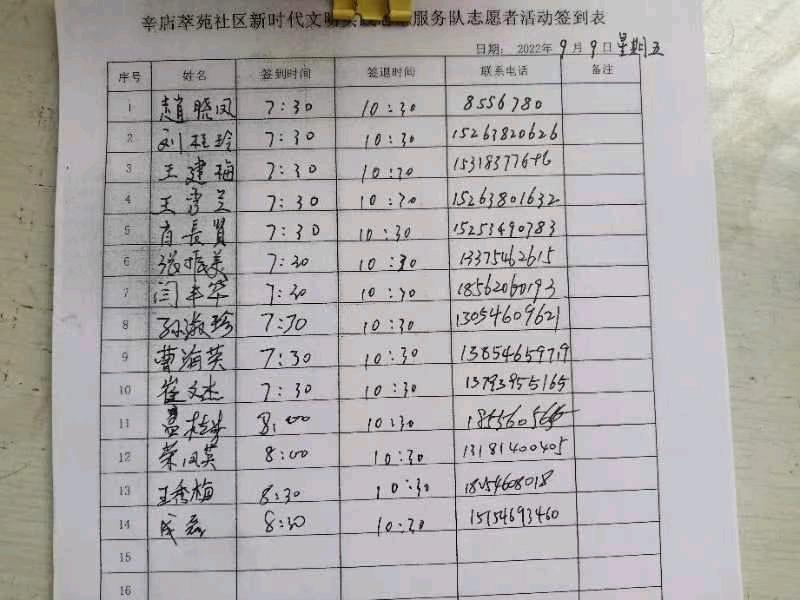 辛店萃苑社区新时代文明 服务队志愿者活动签到表
日期: 2022年 9 月 9 日 星期五
序号 姓名 签到时间 签退时间 联系电话 备注
1 赵晓凤 7:30 10:30 8556780
2 刘桂玲 7:30 10:30 15263820626
3 王建梅 7:30 10:30
4 王 兰 7:30 10:30 15263801632
5 肖长贤 7:30 10:30 15253490783
6 张振美 7:30 10:30 13375462615
7 闫丰华 7:30 10:30 18562060193
8 孙淑珍 7:30 10:30 13054609621
9 曹海英 7:30 10:30 13854659719
10 崔文杰 7:30 10:30 13793955165
11 8:00 10:30
12 荣凤英 8:00 10:30 13181400405
13 王秀梅 8:30 10:30
14 成磊 8:30 10:30 15154693460
15
16